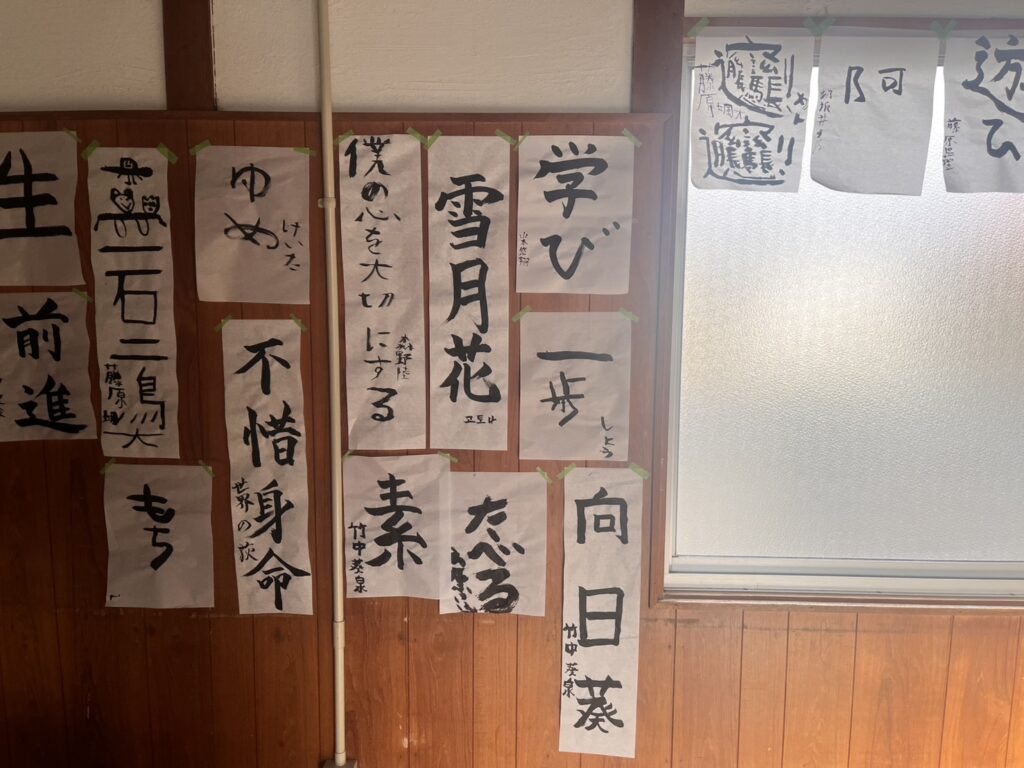 生
前進
一石二鳥
藤原
もち
ゆめ
けいた
不惜身命
世界の荻
僕の心を大切にする
森野陸
雪月花
고토나
学び
一歩
しょう
素
竹中葵泉
たべる
向日葵
竹中葵泉
阿
遊び
藤原